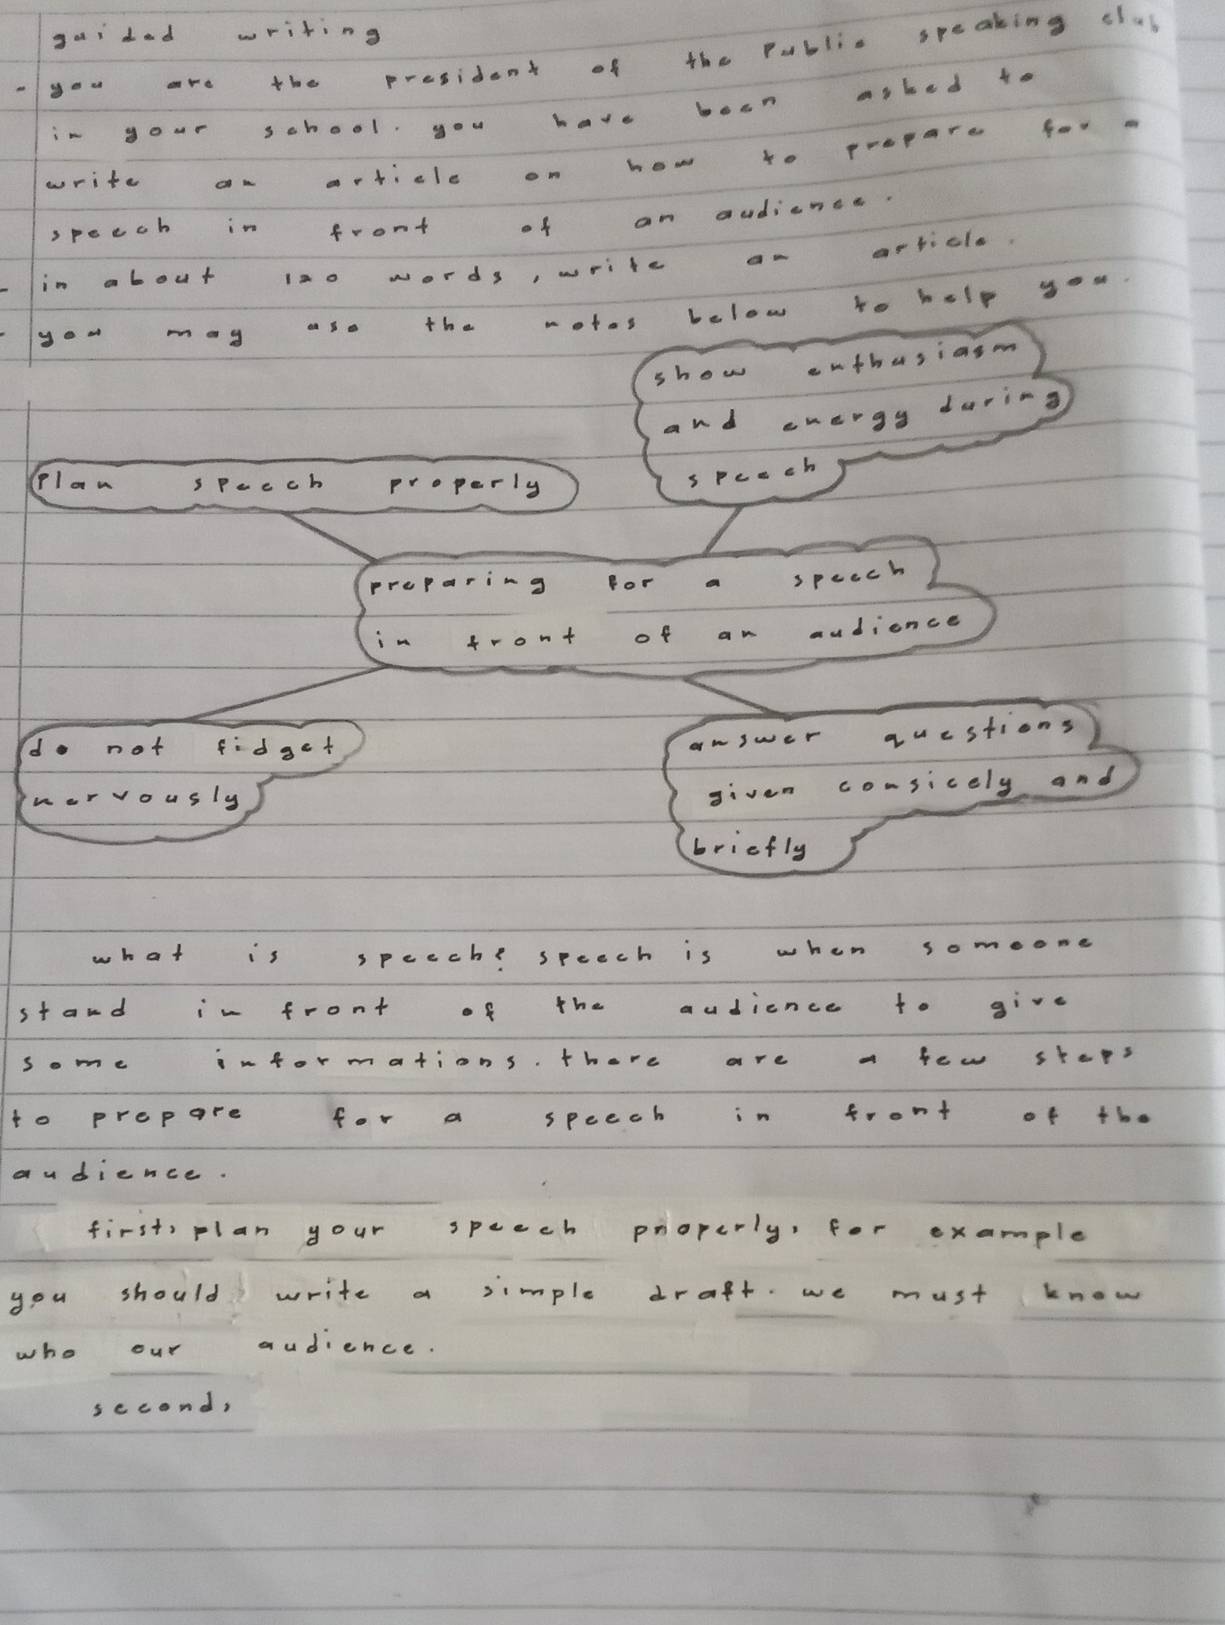 guided writing
- you are the president of the Public speaking club
in your school. you have been asked to
write an article on how to prepare for a
speech in front of an audience.
- in about 120 words, write an article.
- you may use the notes below to help you.
show enthusiasm
and energy during
speech
Plan speech properly
preparing for a speech
in front of an audience
do not fidget
nervously
answer questions
given consicely and
briefly
what is speech? speech is when someone
stand in front of the audience to give
some informations. there are a few steps
to prepare for a speech in front of the
audience.
first, plan your speech properly, for example
you should write a simple draft. we must know
who our audience.
second,